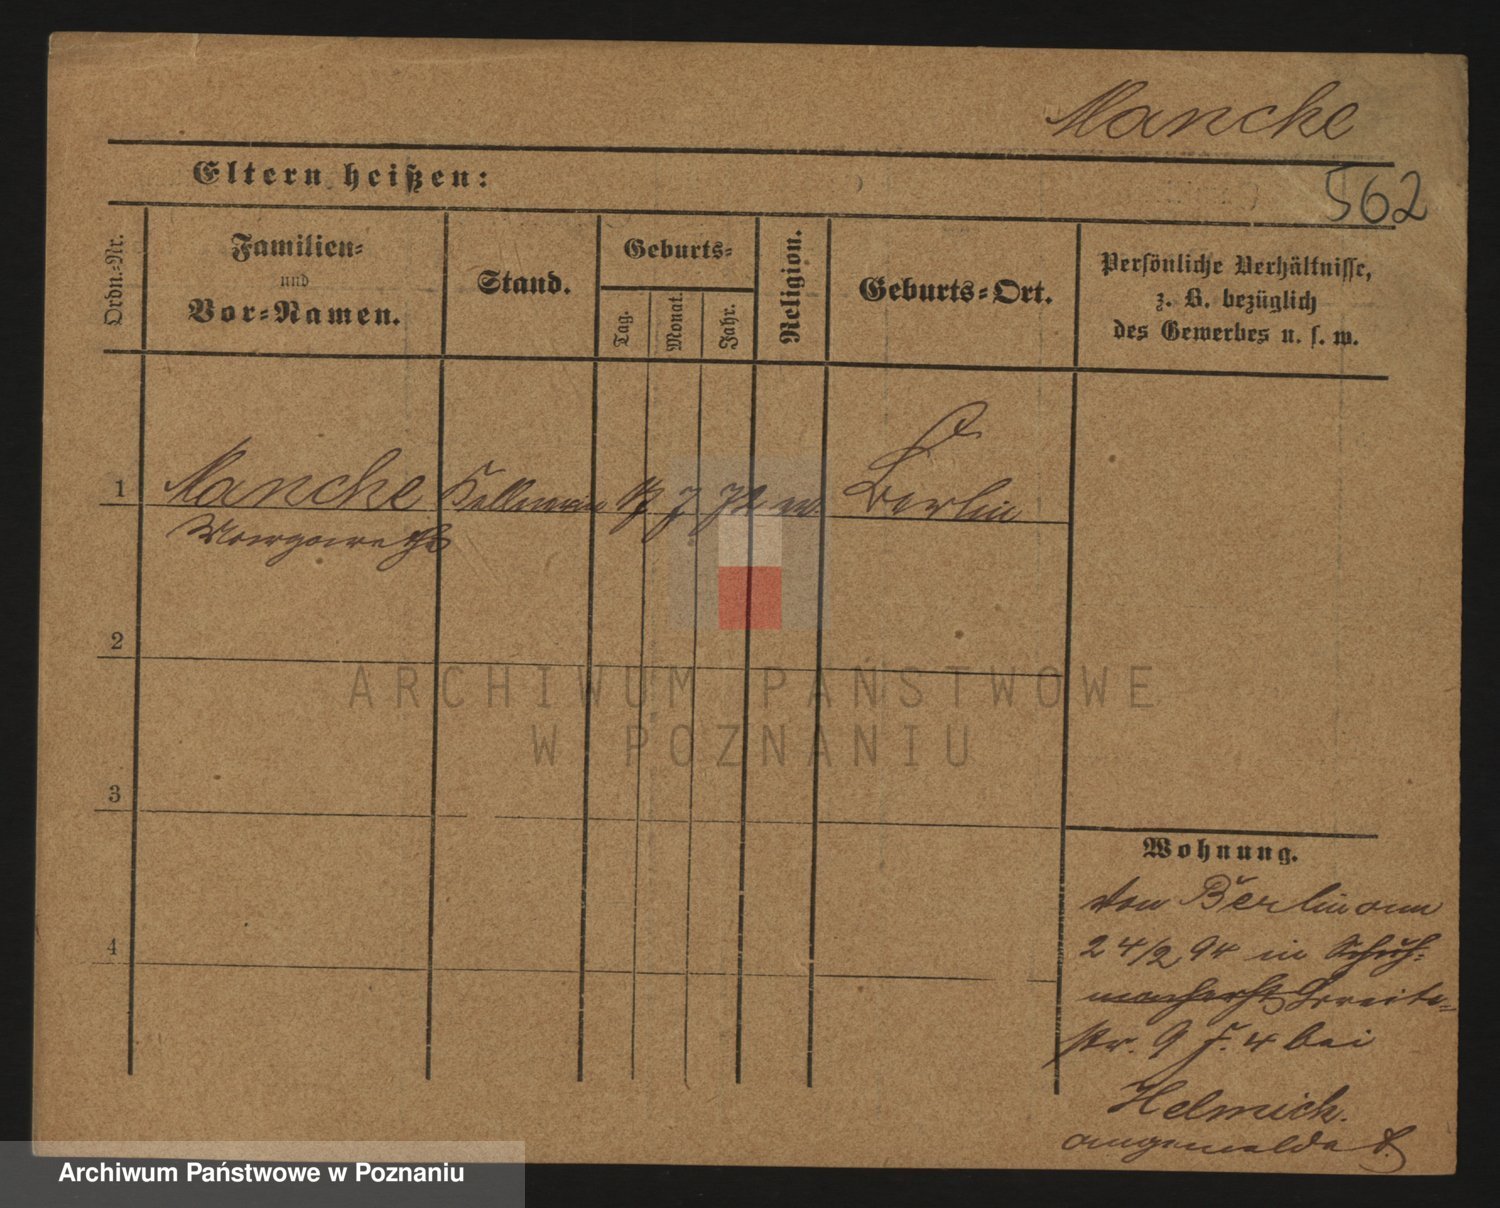 Manche
Eltern heißen:
562
Ordn.=Nr.
Familien=
und
Vor=Namen.
Stand.
Geburts=
Tag.
Monat.
Jahr.
Religion.
Geburts=Ort.
Persönliche Verhältnisse,
z. B. bezüglich
des Gewerbes u. s. w.
1 Manche Kellnerin 7 72 ev. Berlin
Margarethe
2
3
4
Wohnung.
von Berlin am
24/2 94 in Schuh=
macherstr Breite=
str. 9 4 bei
Helmich.
angemeldet.
ARCHIWUM PAŃSTWOWE
W POZNANIU
Archiwum Państwowe w Poznaniu